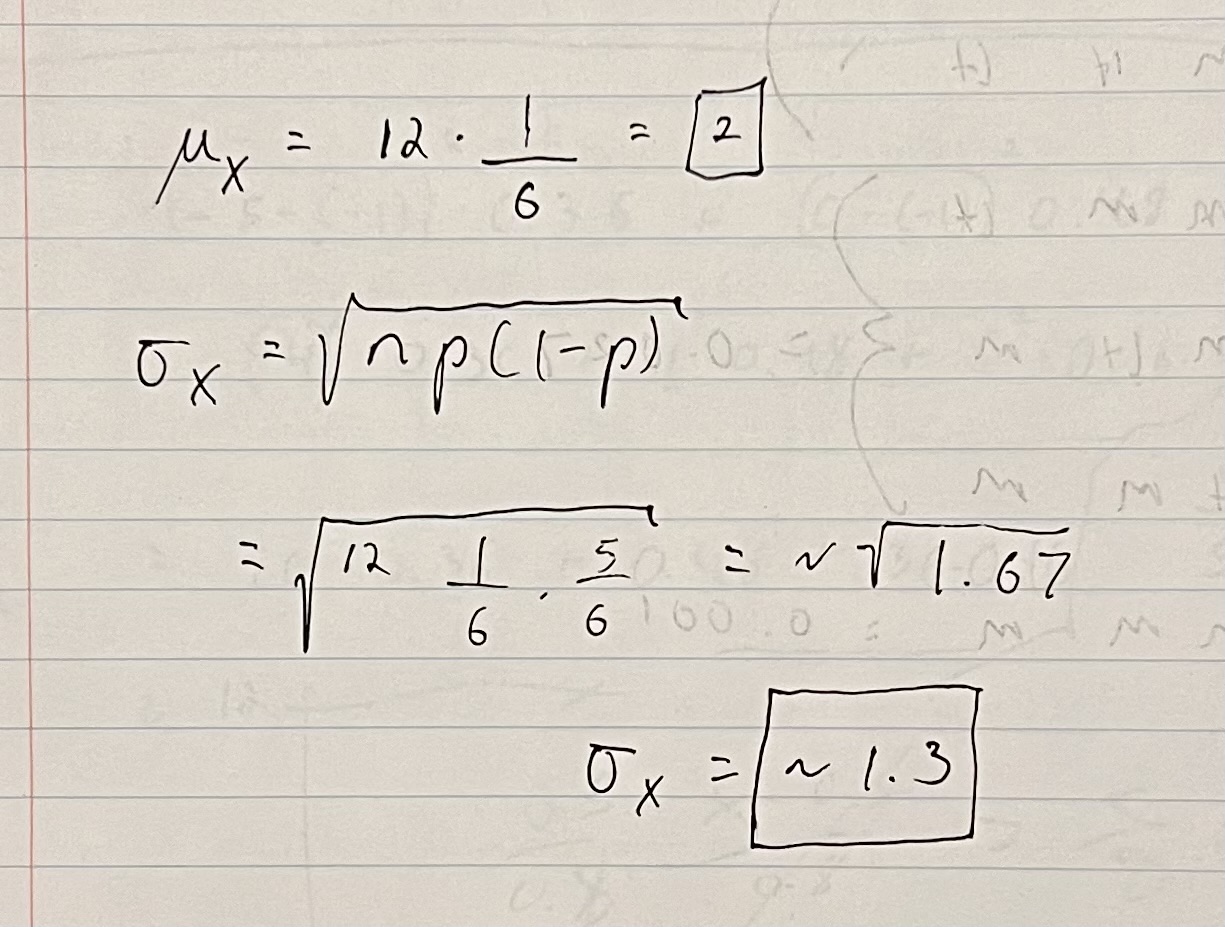 μx = 12 · 1/6 = 2
σx = √np(1-p)
= √12 1/6 · 5/6 = ~ √1.67
σx = ~ 1.3